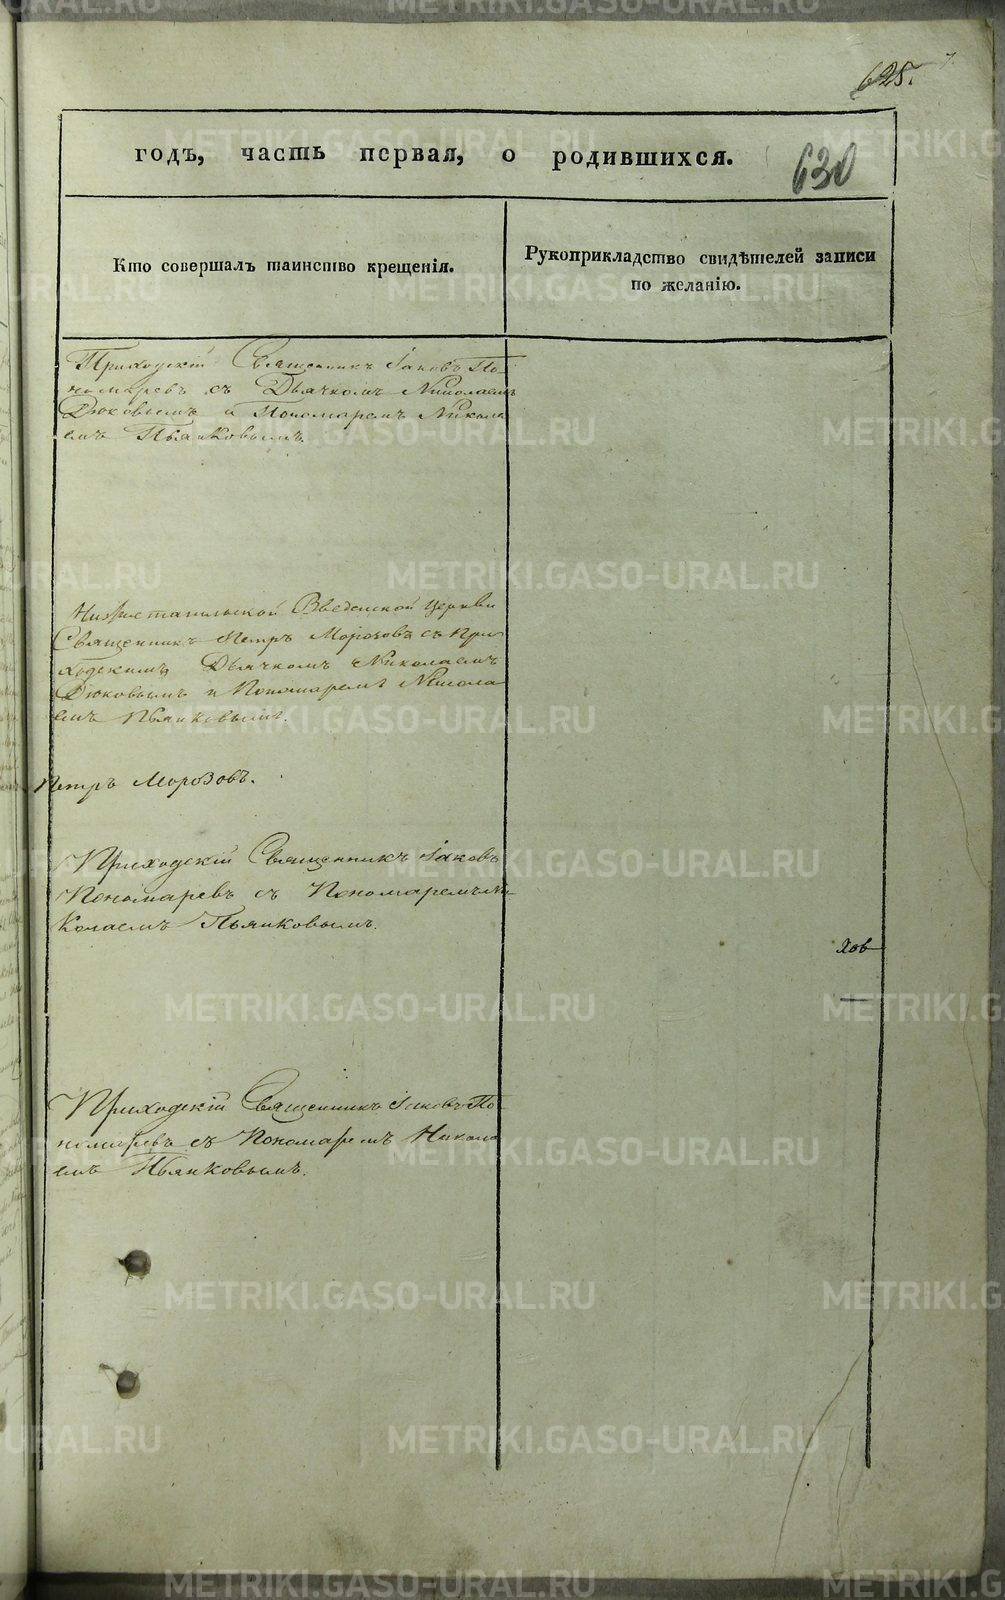 625.
годъ, часть первая, о родившихся.
630
Кто совершалъ таинство крещенія.
Рукоприкладство свидѣтелей записи
по желанію.
Приходскій Священникъ Іаковъ По-
номаревъ съ Дьячкомъ Николаемъ
Дюковымъ и Пономаремъ Никола
емъ Пьянковымъ.
Нижнетагильской Введенской Церкви
Священникъ Петръ Морозовъ съ При-
ходскимъ Дьячкомъ Николаемъ
Дюковымъ и Пономаремъ Никола
емъ Пьянковымъ.
Петръ Морозовъ.
Приходскій Священникъ Іаковъ
Пономаревъ съ Пономаремъ Ни
колаемъ Пьянковымъ.
Приходскій Священникъ Іаковъ По-
номаревъ съ Пономаремъ Никола
емъ Пьянковымъ.
METRIKI.GASO-URAL.RU